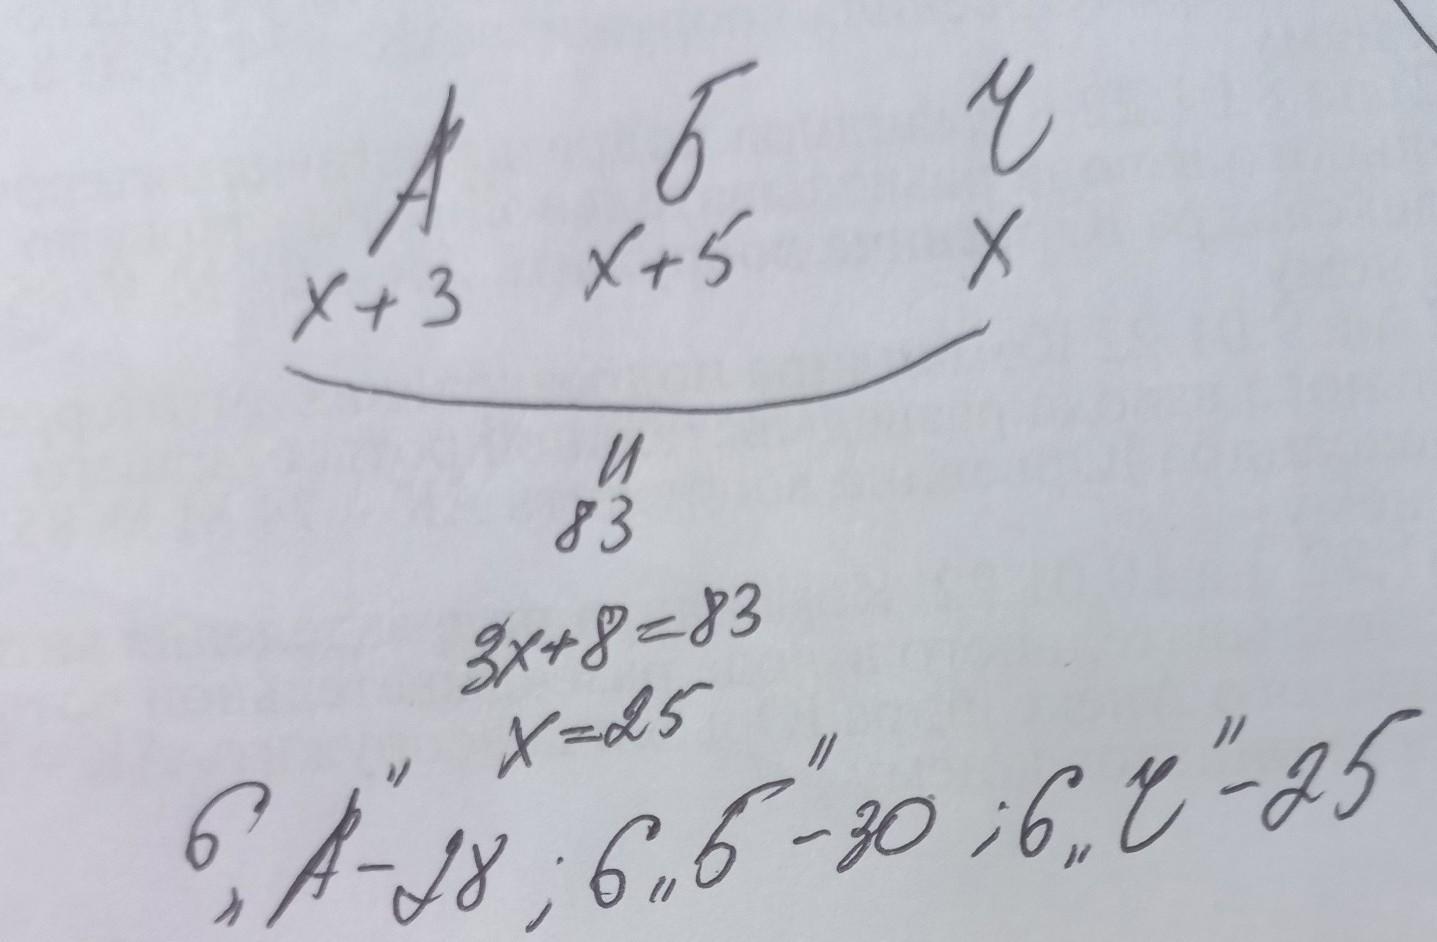 А Б Ч
x+3 x+5 x
||
83
3x+8=83
x=25
6 „А" - 28 ; 6 „Б" - 30 ; 6 „Ч" - 25